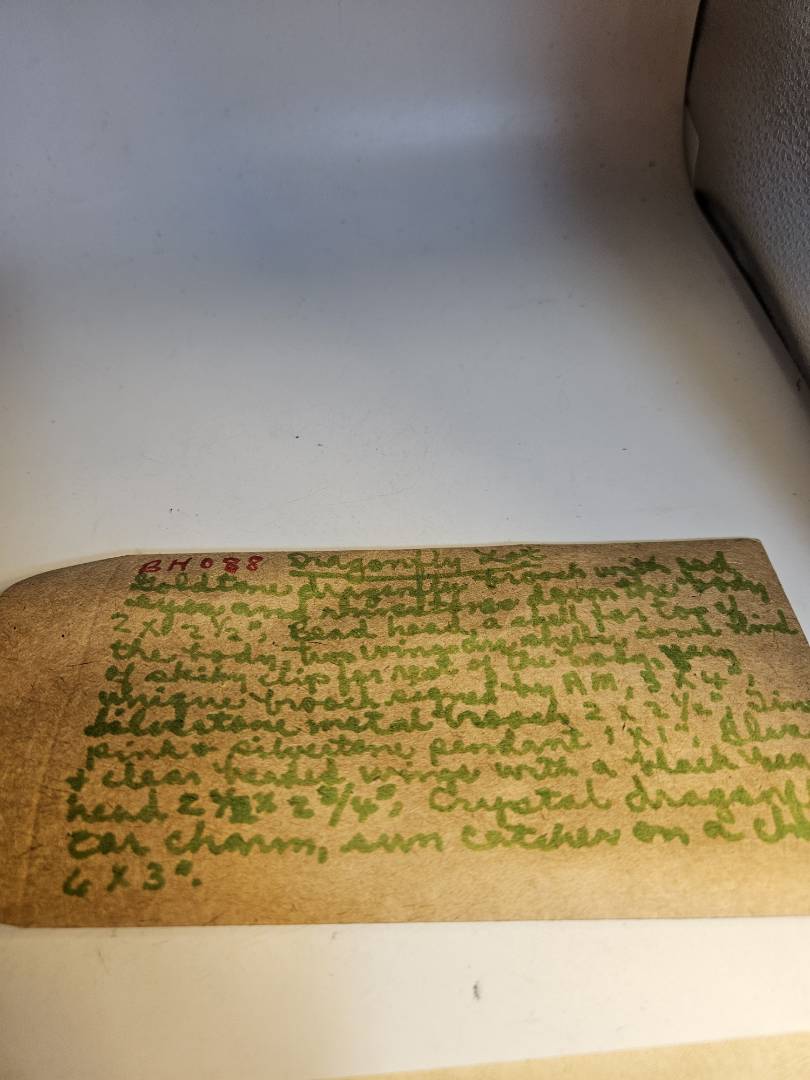 BH088 Dragonfly Lot
Goldtone dragonfly brooch with red
eyes and rhinestones down the body
2 x 2 1/2", Bead head, a shell for top of
the body, two wings are shells, and kind
of shiny clip for rest of the body, very
unique brooch signed by AM, 3 x 4",
Silvertone metal brooch 2 x 2 1/2",
pink + silvertone pendant 1 x 1",
+ clear beaded wings with a black
head 2 1/2 x 2 3/4", Crystal dragonfly
car charm, sun catcher on a
4 x 3".